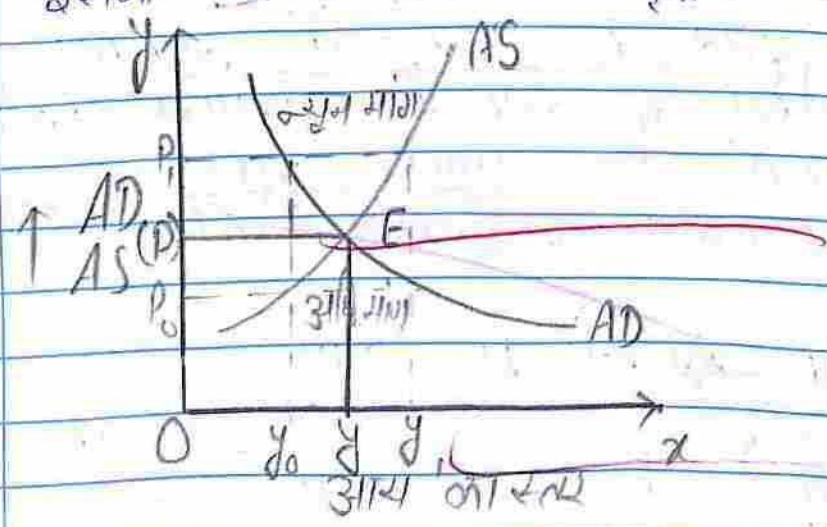 y
AS
न्युन मांग
P₁
AD
(P)
E
AS
P₀
अधि मांग
AD
O
y₀ y y₁ x
आय का स्तर